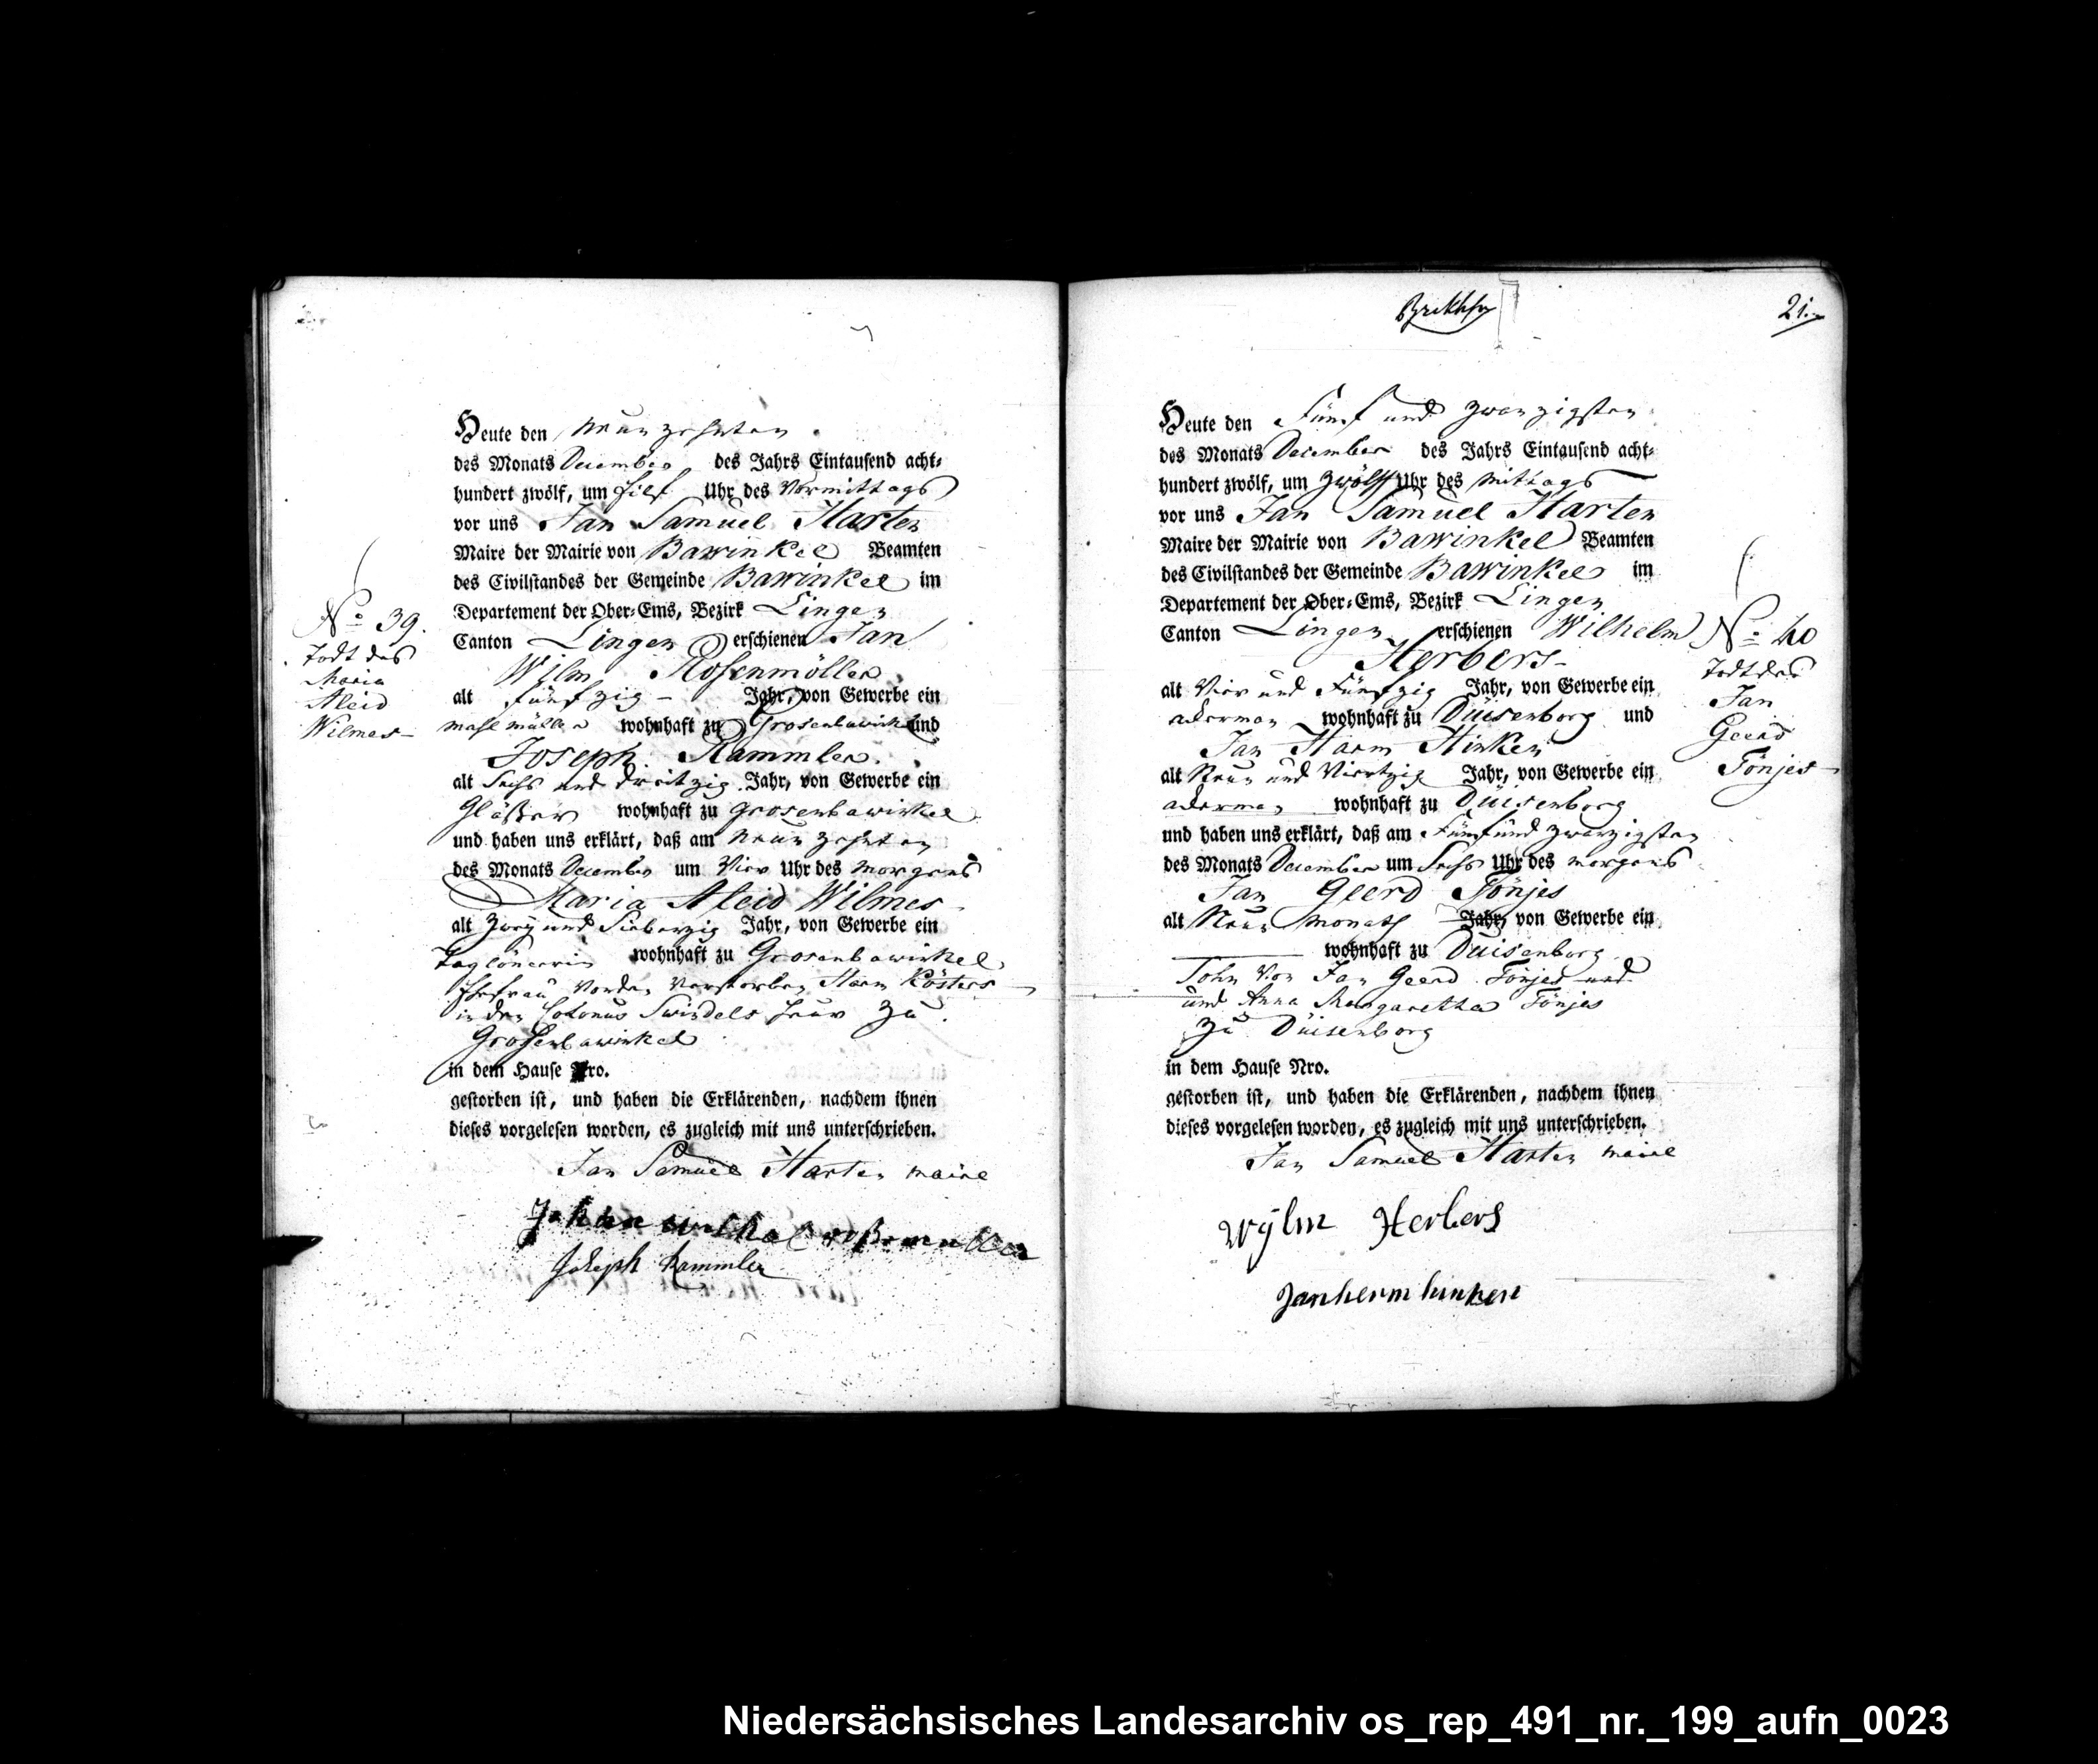 Heute den Neunzehnten
des Monats December des Jahrs Eintausend acht-
hundert zwölf, um Eilf Uhr des Vormittags
vor uns Jan Samuel Harten
Maire der Mairie von Bawinkel Beamten
des Civilstandes der Gemeinde Bawinkel im
Departement der Ober-Ems, Bezirk Lingen
Canton Lingen erschienen Jan
Wilm Rosenmöller
alt fünfzig Jahr, von Gewerbe ein
mahl müller wohnhaft zu Grosenbawinkel und
Joseph Rammler
alt Sechs und dreitzig Jahr, von Gewerbe ein
Gläßer wohnhaft zu grosenbawinkel
und haben uns erklärt, daß am Neunzehnten
des Monats December um Vier Uhr des morgens
Maria Aleid Wilmes
alt Zwey und Siebenzig Jahr, von Gewerbe ein
Taglönerrin wohnhaft zu Grosenbawinkel
Ehefrau Von den Verstorben Harm Kösters
in den Colonus Swindels Heuer zu
Grosenbawinkel
in dem Hause Nro.
gestorben ist, und haben die Erklärenden, nachdem ihnen
dieses vorgelesen worden, es zugleich mit uns unterschrieben.
Jan Samuel Harten maire
Joseph Rammler
No 39.
Todt des
Maria
Aleid
Wilmes
21.
Heute den Fünf und zwanzigsten
des Monats December des Jahrs Eintausend acht-
hundert zwölf, um Zwölff Uhr des Mittags
vor uns Jan Samuel Harten
Maire der Mairie von Bawinkel Beamten
des Civilstandes der Gemeinde Bawinkel im
Departement der Ober-Ems, Bezirk Lingen
Canton Lingen erschienen Wilhelm
Herbers
alt Vier und Fünfzig Jahr, von Gewerbe ein
ackerman wohnhaft zu Düisenborg und
Jan Harm Hinken
alt Neun und Viertzig Jahr, von Gewerbe ein
ackerman wohnhaft zu Düisenborg
und haben uns erklärt, daß am Fünf und zwanzigsten
des Monats December um Sechs Uhr des morgens
Jan Geerd Tönjes
alt Neun Monath Jahr, von Gewerbe ein
wohnhaft zu Duisenborg
Sohn Von Jan Geerd Tönjes und
und Anna Margaretha Tönjes
zu Düisenborg
in dem Hause Nro.
gestorben ist, und haben die Erklärenden, nachdem ihnen
dieses vorgelesen worden, es zugleich mit uns unterschrieben.
Jan Samuel Harten maire
Wylm Herbers
Jan herm hinken
No 40
Todt des
Jan
Geerd
Tönjes
Niedersächsisches Landesarchiv os_rep_491_nr._199_aufn_0023